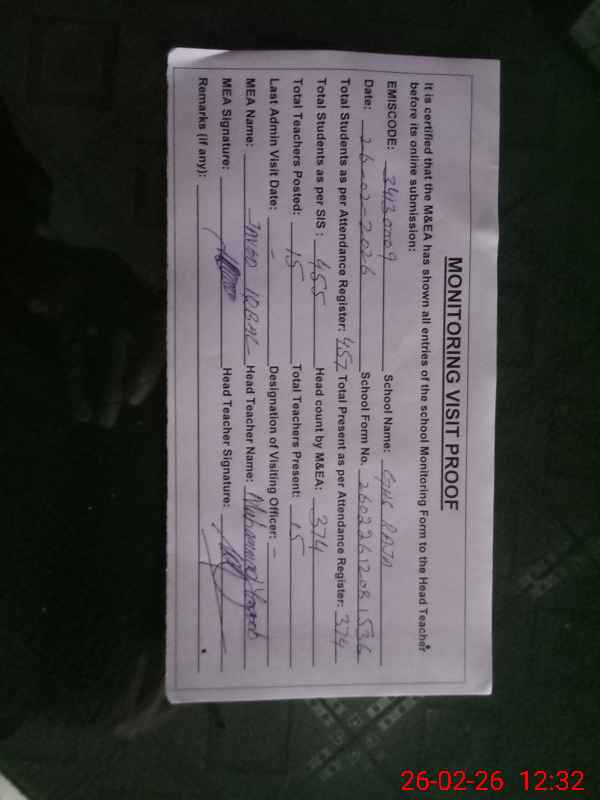 MONITORING VISIT PROOF
It is certified that the M&EA has shown all entries of the school Monitoring Form to the Head Teacher
before its online submission:
EMISCODE: 34130009 School Name: GHS RAJA
Date: 26-02-2026 School Form No. 26022612081536
Total Students as per Attendance Register: 457 Total Present as per Attendance Register: 374
Total Students as per SIS : 455 Head count by M&EA: 374
Total Teachers Posted: 15 Total Teachers Present: 15
Last Admin Visit Date: - Designation of Visiting Officer: -
MEA Name: JAVED IQBAL Head Teacher Name: Muhammad
MEA Signature: Head Teacher Signature:
Remarks (if any):
26-02-26 12:32